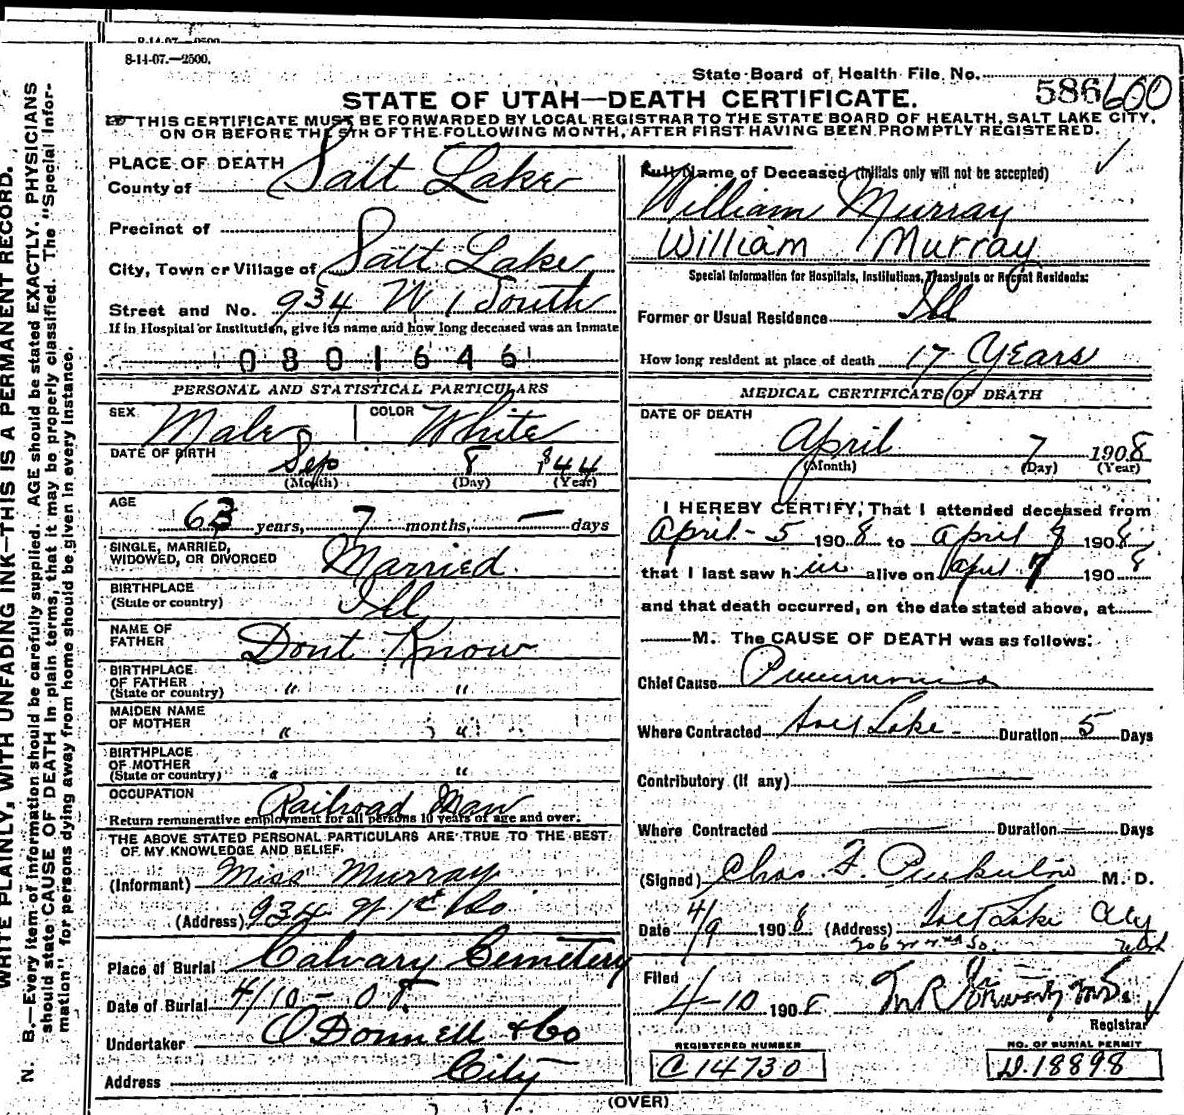 8-14-07.—2500.
8-14-07.—2500.
State Board of Health File No. 586 600
STATE OF UTAH—DEATH CERTIFICATE.
THIS CERTIFICATE MUST BE FORWARDED BY LOCAL REGISTRAR TO THE STATE BOARD OF HEALTH, SALT LAKE CITY,
ON OR BEFORE THE 5TH OF THE FOLLOWING MONTH, AFTER FIRST HAVING BEEN PROMPTLY REGISTERED.
WRITE PLAINLY, WITH UNFADING INK—THIS IS A PERMANENT RECORD.
N. B.—Every item of information should be carefully supplied. AGE should be stated EXACTLY. PHYSICIANS
should state CAUSE OF DEATH in plain terms, that it may be properly classified. The "Special Infor-
mation" for persons dying away from home should be given in every instance.
PLACE OF DEATH
County of Salt Lake
Precinct of
City, Town or Village of Salt Lake
Street and No. 934 W 1 South
If in Hospital or Institution, give its name and how long deceased was an inmate
0801646
PERSONAL AND STATISTICAL PARTICULARS
SEX Male COLOR White
DATE OF BIRTH Sep 8 1844
(Month) (Day) (Year)
AGE
63 years, 7 months, — days
SINGLE, MARRIED,
WIDOWED, OR DIVORCED Married
BIRTHPLACE
(State or country) Ill
NAME OF
FATHER Dont Know
BIRTHPLACE
OF FATHER
(State or country) " "
MAIDEN NAME
OF MOTHER " "
BIRTHPLACE
OF MOTHER
(State or country) " "
OCCUPATION Railroad Man
Return remunerative employment for all persons 10 years of age and over.
THE ABOVE STATED PERSONAL PARTICULARS ARE TRUE TO THE BEST
OF MY KNOWLEDGE AND BELIEF.
(Informant) Miss Murray
(Address) 934 W 1st So
Place of Burial Calvary Cemetery
Date of Burial 4/10-08
Undertaker O'Donnell & Co
Address City
Full Name of Deceased (Initials only will not be accepted)
William Murray
William Murray
Special Information for Hospitals, Institutions, Transients or Recent Residents:
Former or Usual Residence Ill
How long resident at place of death 17 Years
MEDICAL CERTIFICATE OF DEATH
DATE OF DEATH
April 7 1908
(Month) (Day) (Year)
I HEREBY CERTIFY, That I attended deceased from
April - 5 1908 to April 8 1908,
that I last saw him alive on April 7 1908
and that death occurred, on the date stated above, at
M. The CAUSE OF DEATH was as follows:
Chief Cause Pneumonia
Where Contracted Salt Lake Duration 5 Days
Contributory (if any) —
Where Contracted — Duration — Days
(Signed) Chas. F. M. D.
Date 4/9 1908 (Address) Salt Lake City
Utah
Filed
4-10 1908
Registrar
REGISTERED NUMBER
C 14730
NO. OF BURIAL PERMIT
D.18898
(OVER)